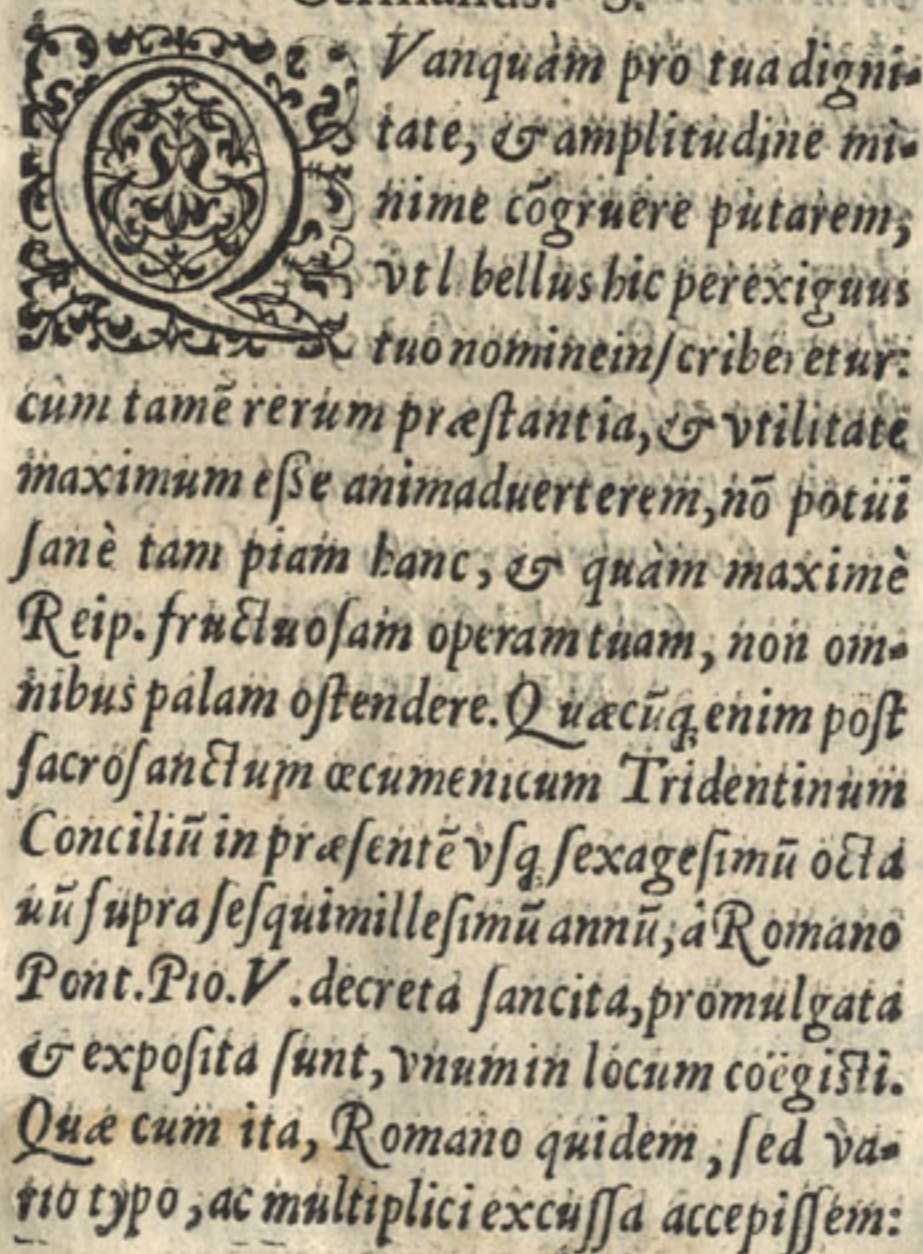 QVanquàm pro tua digni-
tate, & amplitudine mi-
nime cõgruere putarem,
vt l bellus hic perexiguus
tuo nomine inſcriberetur:
cùm tamẽ rerum præſtantia, & vtilitate
maximum eſſe animaduerterem, nõ potui
ſanè tam piam hanc, & quàm maximè
Reip. fructuoſam operam tuam, non om-
nibus palam oſtendere. Quæcũq; enim poſt
ſacroſanctum œcumenicum Tridentinum
Conciliũ in præſentẽ vſq; ſexageſimũ octa
uũ ſupra ſeſquimilleſimũ annũ, à Romano
Pont. Pio. V. decreta ſancita, promulgata
& expoſita ſunt, vnum in locum coëgiſti.
Quæ cum ita, Romano quidem, ſed va-
rio typo, ac multiplici excuſſa accepiſſem: